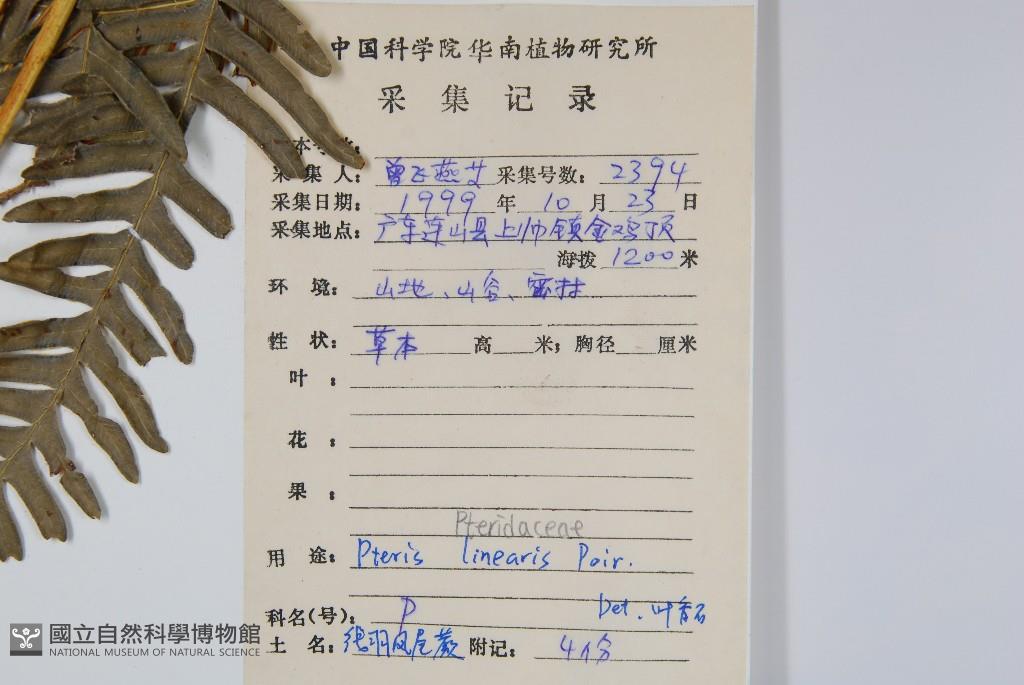 中国科学院华南植物研究所
采集记录
采集人: 曾飞燕 采集号数: 2394
采集日期: 1999 年 10 月 23 日
采集地点: 广东连山县上帅镇金鸡顶
海拨 1200 米
环境: 山地、山谷、密林
性状: 草本 高 米; 胸径 厘米
叶:
花:
果:
Pteridaceae
用途: Pteris linearis Poir.
科名(号): P Det. 叶香石
土名: 线羽凤尾蕨 附记: 4份
國立自然科學博物館
NATIONAL MUSEUM OF NATURAL SCIENCE